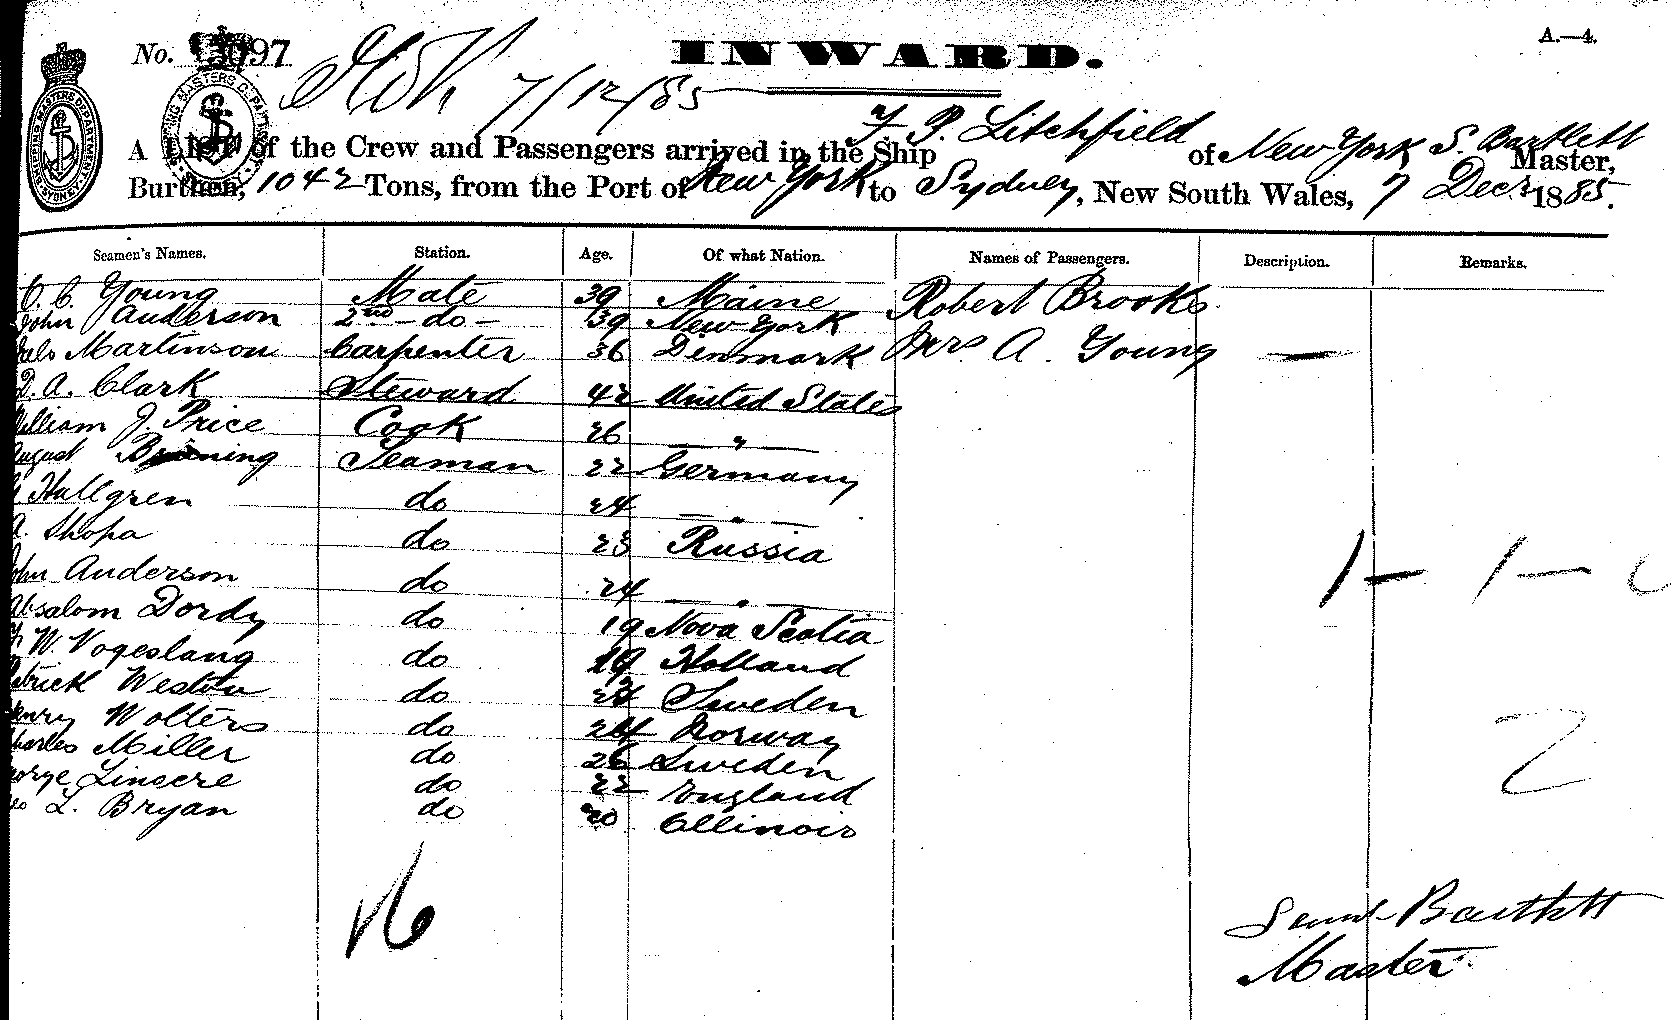 No. 3097 7/12/85 INWARD. A.—4.
A LIST of the Crew and Passengers arrived in the Ship F. P. Litchfield of New York S. Bartlett Master,
Burthen, 1042 Tons, from the Port of New York to Sydney, New South Wales, 7 Decr 1885.
Seamen's Names. Station. Age. Of what Nation. Names of Passengers. Description. Remarks.
C. Young Mate 39 Maine Robert Brooks
John Anderson 2nd - do - 39 New York Mrs A. Young —
Martinson Carpenter 36 Denmark
D. A. Clark Steward 42 United States
William J. Price Cook 26 — " —
August Seaman 22 Germany
Hallgren do 24 — " —
A. Shopa do 23 Russia
John Anderson do 24 — " —
1 - 1 - 0
Absalom Dordy do 19 Nova Scotia
W. Vogeslang do 19 Holland
Patrick Weston do Sweden
Henry Wolters do 24 Norway
Charles Miller do 26 Sweden
2
George Linacre do 22 England
Geo L. Bryan do 20 Illinois
16
Saml Bartlett
Master